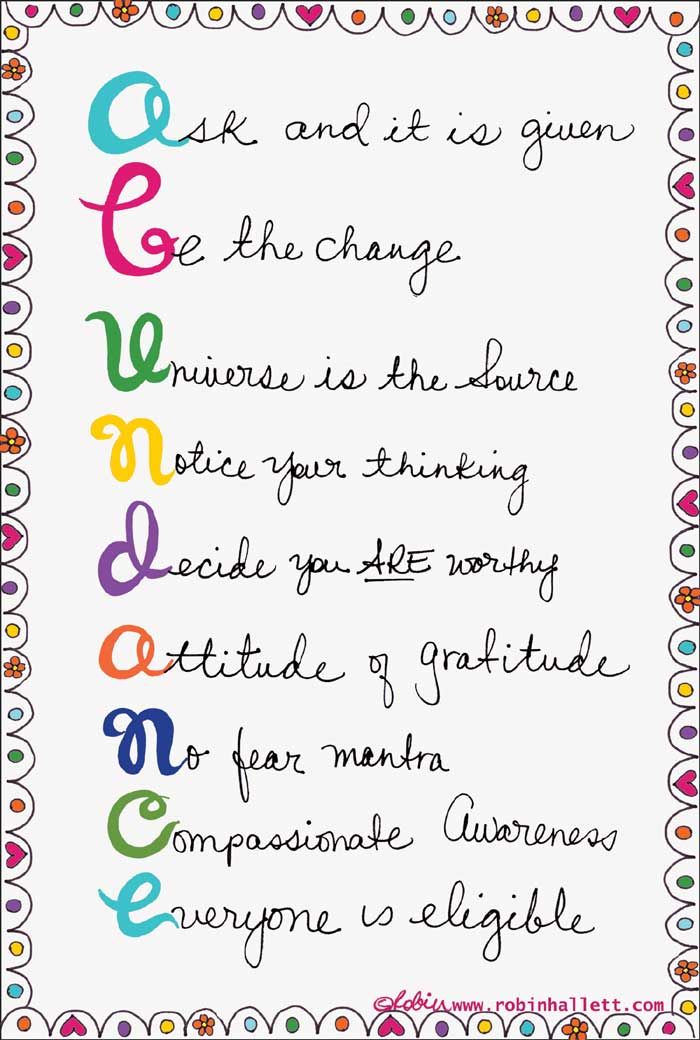 Ask and it is given
be the change
Universe is the Source
notice your thinking
decide you ARE worthy
attitude of gratitude
no fear mantra
Compassionate Awareness
everyone is eligible
©Robin www.robinhallett.com